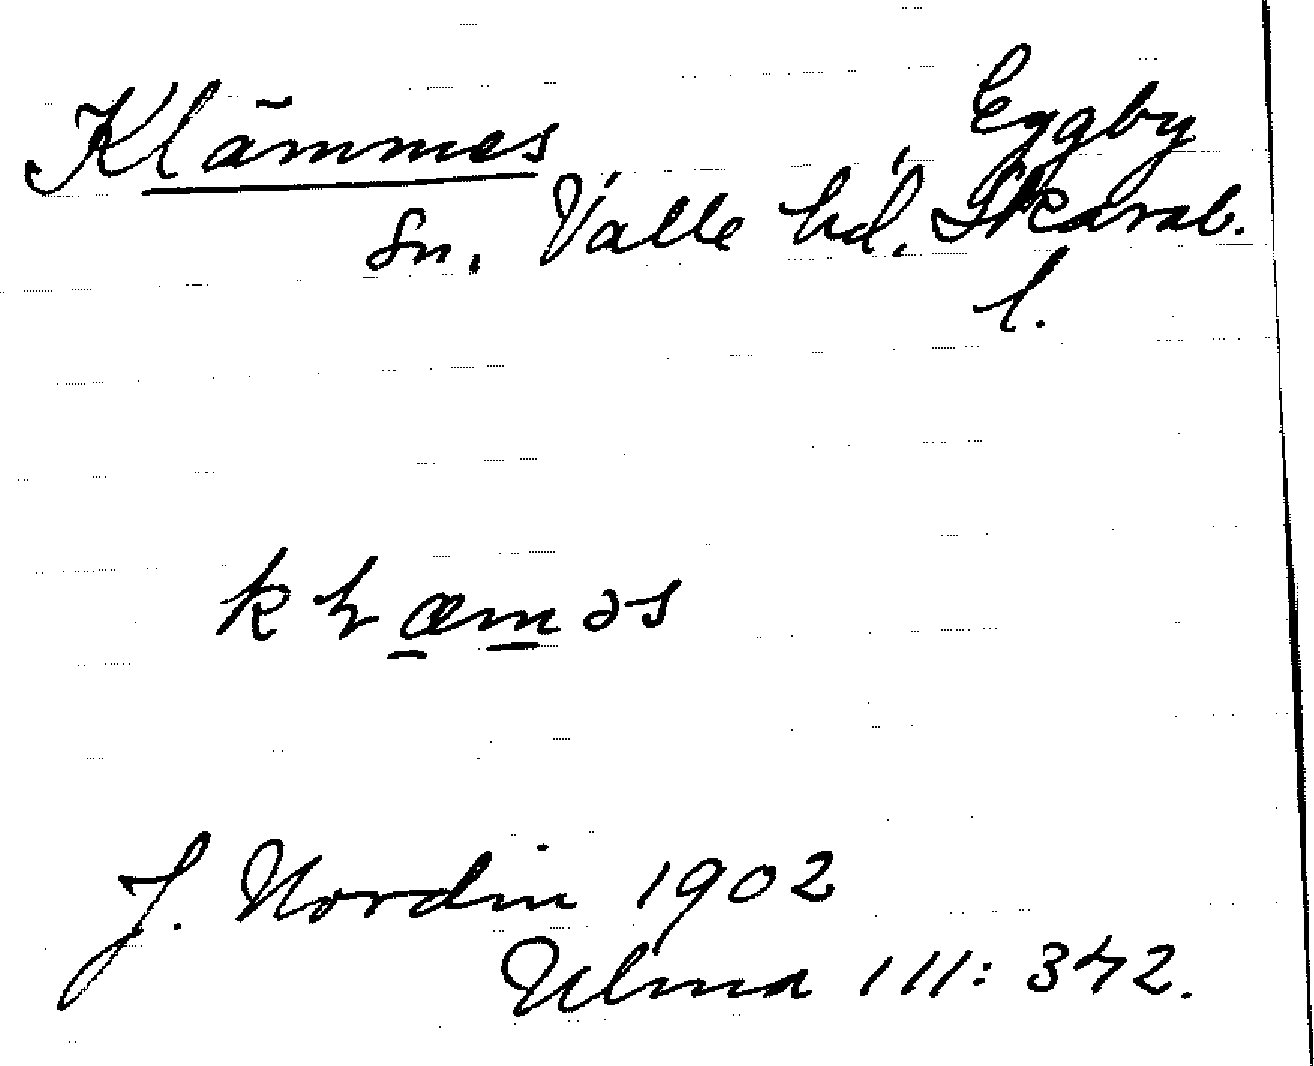 Klämmes Eggby
sn. Valle hd. Skarab.
l.
kɫæməs
J. Nordin 1902
Ulma 111: 342.